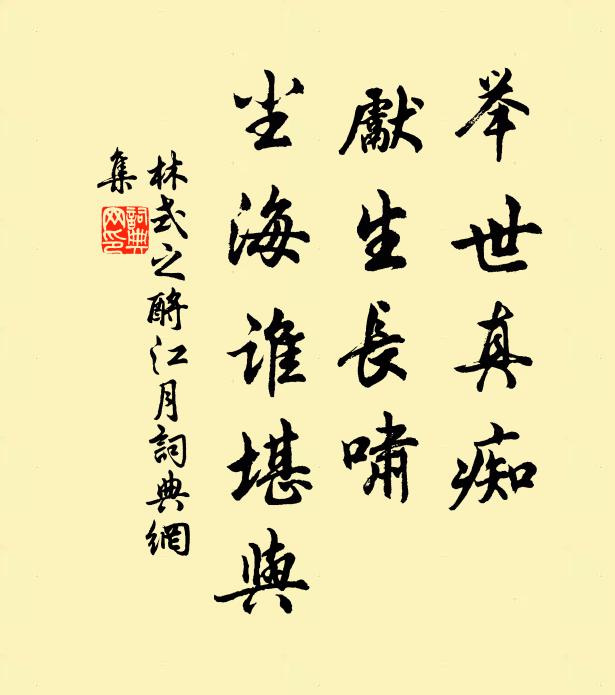 举世真痴
獻生長嘯
尘海誰堪與
林式之酹江月詞典網
集
詞典
网印